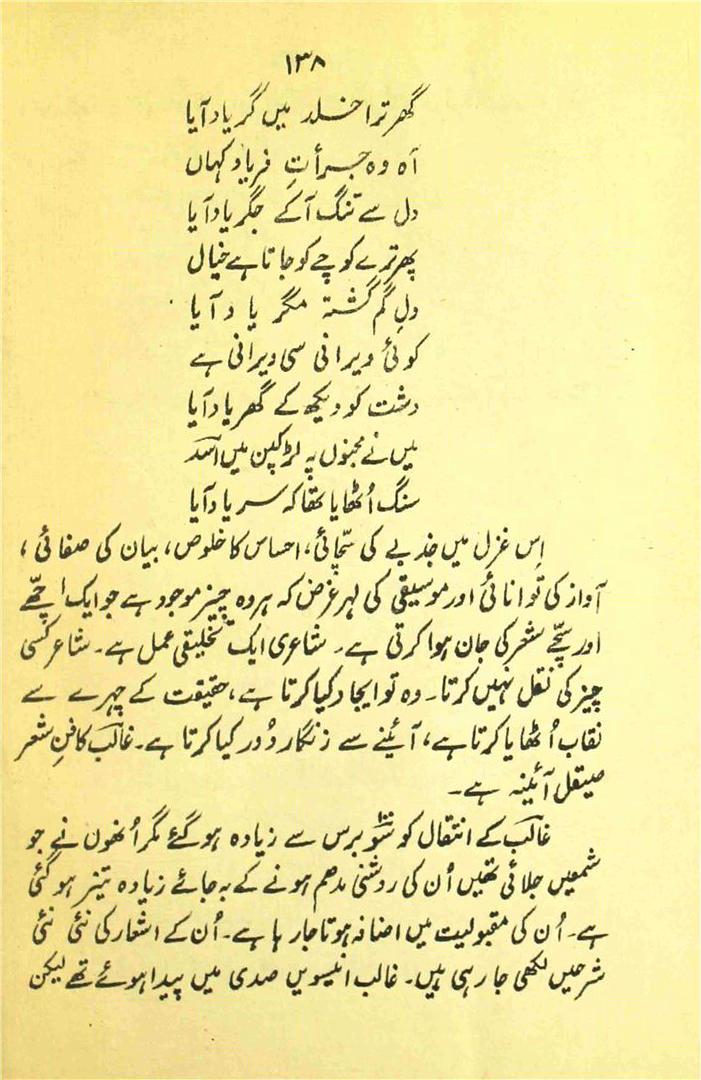 ۱۳۸
گھر ترا خلد میں گر یاد آیا
آہ وہ جرأتِ فریاد کہاں
دل سے تنگ آکے جگر یاد آیا
پھر ترے کوچے کو جاتا ہے خیال
دلِ گم گشتہ مگر یاد آیا
کوئی ویرانی سی ویرانی ہے
دشت کو دیکھ کے گھر یاد آیا
میں نے مجنوں پہ لڑکپن میں اسد
سنگ اُٹھایا تھا کہ سر یاد آیا
اِس غزل میں جذبے کی سچّائی، احساس کا خلوص، بیان کی صفائی،
آواز کی توانائی اور موسیقی کی لہر غرض کہ ہر وہ چیز موجود ہے جو ایک اچھّے
اور سچّے شعر کی جان ہوا کرتی ہے۔ شاعری ایک تخلیقی عمل ہے۔ شاعر کسی
چیز کی نقل نہیں کرتا۔ وہ تو ایجاد کیا کرتا ہے، حقیقت کے چہرے سے
نقاب اُٹھایا کرتا ہے، آئینے سے زنگار دُور کیا کرتا ہے۔ غالبؔ کا فنِ شعر
صیقلِ آئینہ ہے۔
غالبؔ کے انتقال کو سَو برس سے زیادہ ہوگئے مگر اُنھوں نے جو
شمعیں جلائی تھیں اُن کی روشنی مدھم ہونے کے بہ جائے زیادہ تیز ہوگئی
ہے۔ اُن کی مقبولیت میں اضافہ ہوتا جارہا ہے۔ اُن کے اشعار کی نئی نئی
شرحیں لکھی جارہی ہیں۔ غالب انیسویں صدی میں پیدا ہوئے تھے لیکن